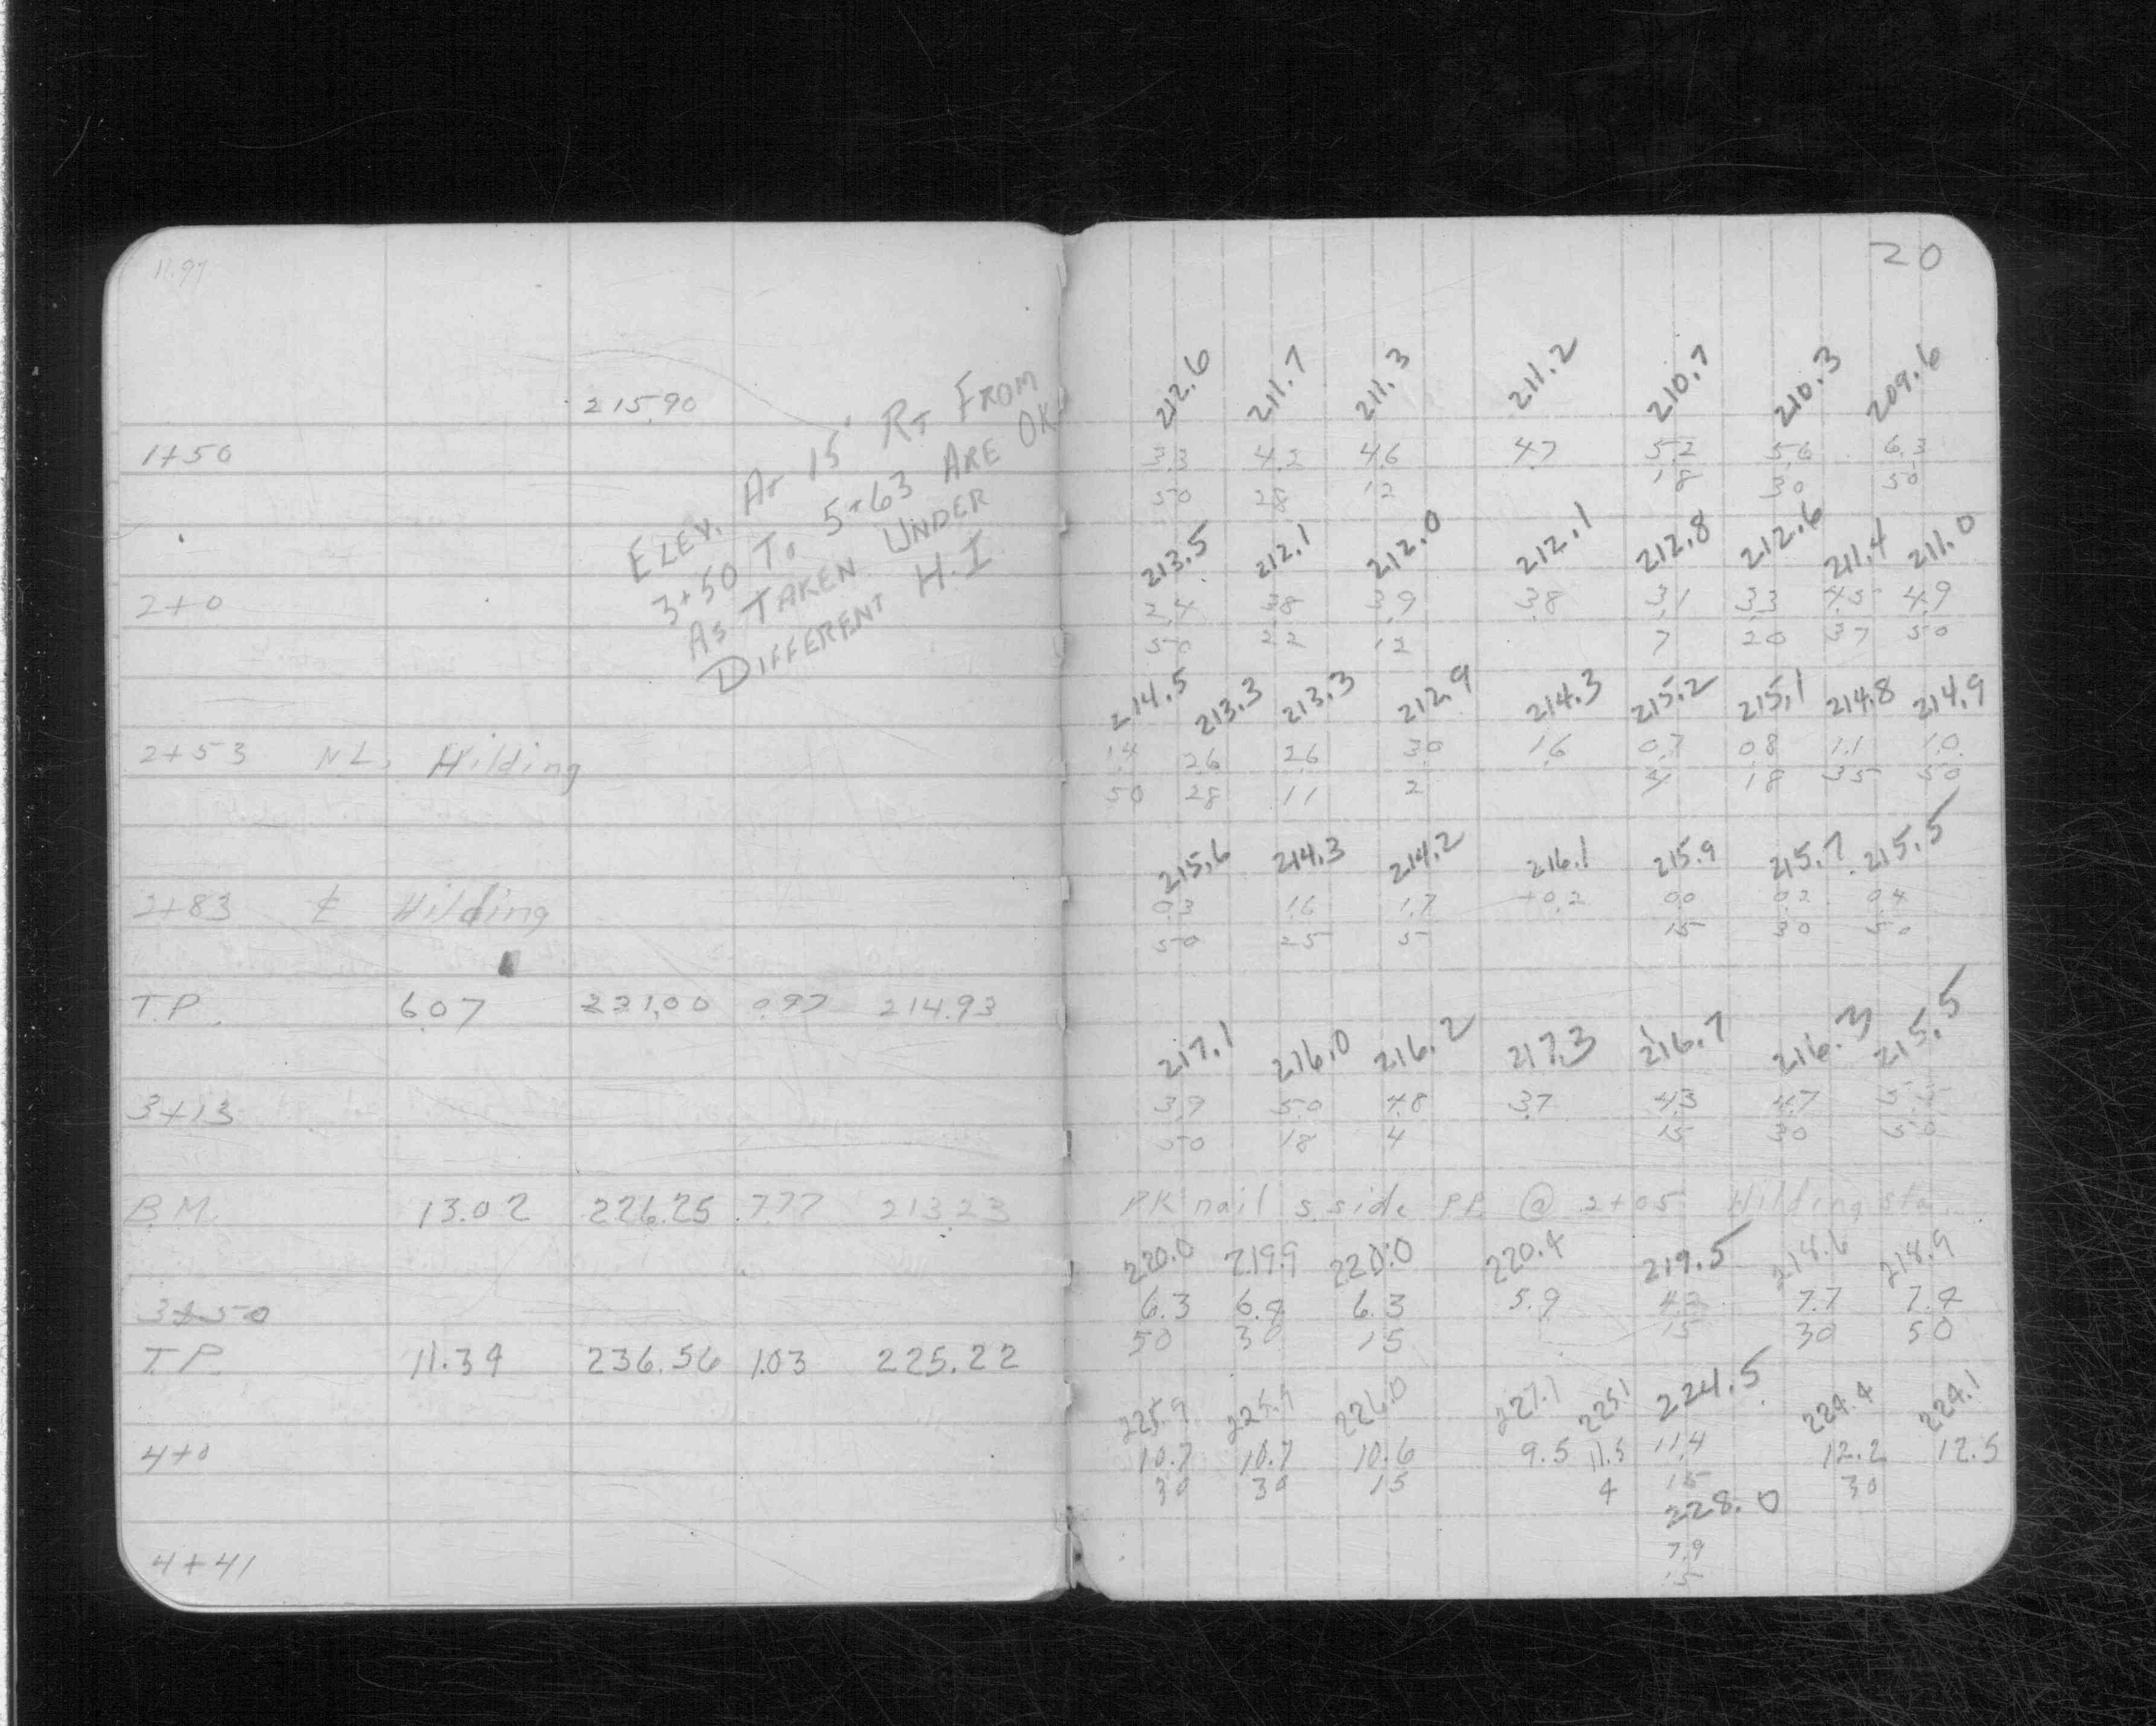 11.97
20
215.90
ELEV. AT 15' RT FROM
3+50 TO 5+63 ARE OK
AS TAKEN UNDER
DIFFERENT H.I.
212.6 211.7 211.3 211.2 210.7 210.3 209.6
1+50 3.3 4.2 4.6 4.7 5.2 5.6 6.3
50 28 12 18 30 50
213.5 212.1 212.0 212.1 212.8 212.6 211.4 211.0
2+0 2.4 3.8 3.9 3.8 3.1 3.3 4.5 4.9
50 22 12 7 20 37 50
214.5 213.3 213.3 212.9 214.3 215.2 215.1 214.8 214.9
2+53 N.L. Hilding 1.4 2.6 2.6 3.0 1.6 0.7 0.8 1.1 1.0
50 28 11 2 4 18 35 50
215.6 214.3 214.2 216.1 215.9 215.7 215.5
2+83 ℄ Hilding 0.3 1.6 1.7 +0.2 0.0 0.2 0.4
50 25 5 15 30 50
T.P. 6.07 221.00 0.97 214.93
217.1 216.0 216.2 217.3 216.7 216.3 215.5
3+13 3.9 5.0 4.8 3.7 4.3 4.7
50 18 4 15 30 50
B.M. 13.02 226.25 7.77 213.23 PK nail S. side P.P. @ 2+05 Hilding sta.
220.0 219.9 220.0 220.4 219.5 218.6 218.9
3+50 6.3 6.3 5.9 4.2 7.7 7.4
50 30 15 15 30 50
T.P. 11.34 236.56 1.03 225.22
225.9 225.9 226.0 227.1 225.1 224.5 224.4 224.1
4+0 10.7 10.7 10.6 9.5 11.5 11.4 12.2 12.5
30 30 15 4 15 30
228.0
4+41 7.9
15